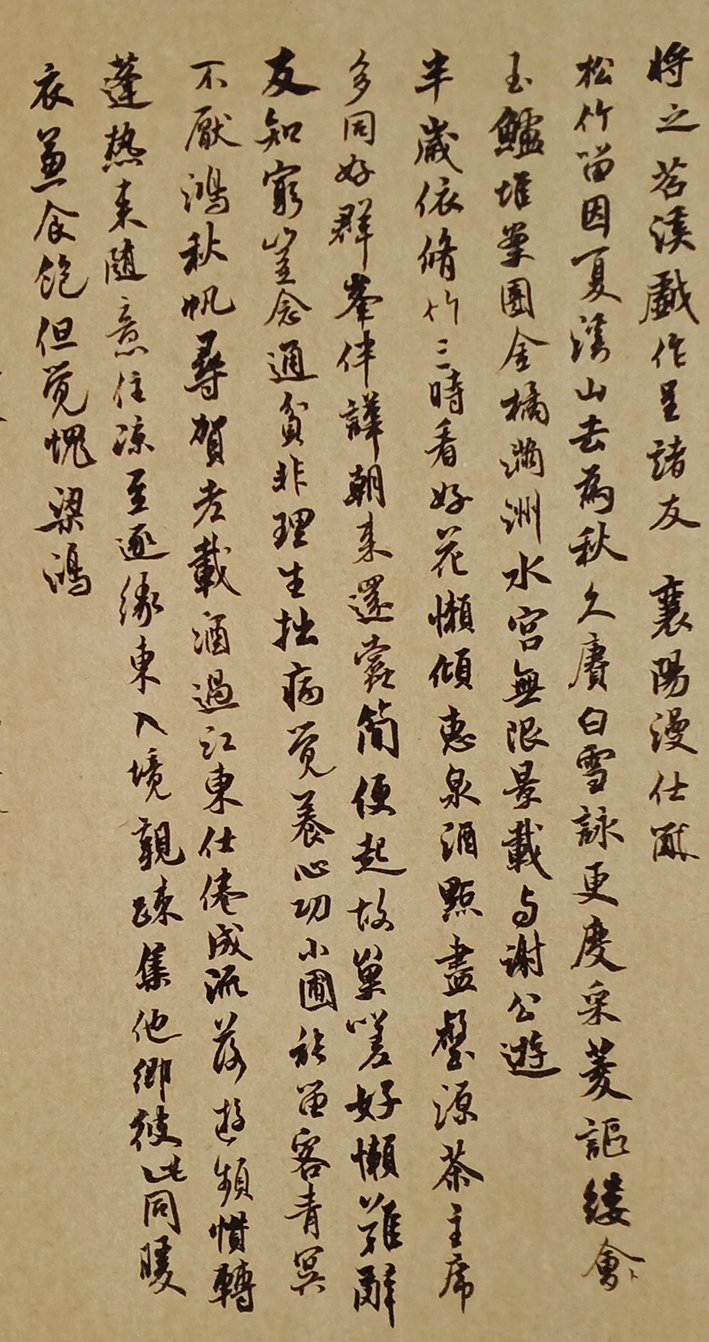 將之苕溪戲作呈諸友　襄陽漫仕黻
松竹留因夏溪山去為秋久賡白雪詠更度采菱謳縷會
玉鱸堆案團金橘滿洲水宮無限景載与謝公遊
半歲依脩竹三時看好花懶傾惠泉酒點盡壑源茶主席
多同好群峯伴譁朝来還蠹簡便起故巢嗟好懶難辭
友知窮豈念通貧非理生拙病覺養心功小圃能留客青冥
不厭鴻秋帆尋賀老載酒過江東仕倦成流落遊頻慣轉
蓬热来隨意住涼至逐緣東入境親疎集他鄉彼此同暖
衣兼食飽但覺愧梁鴻